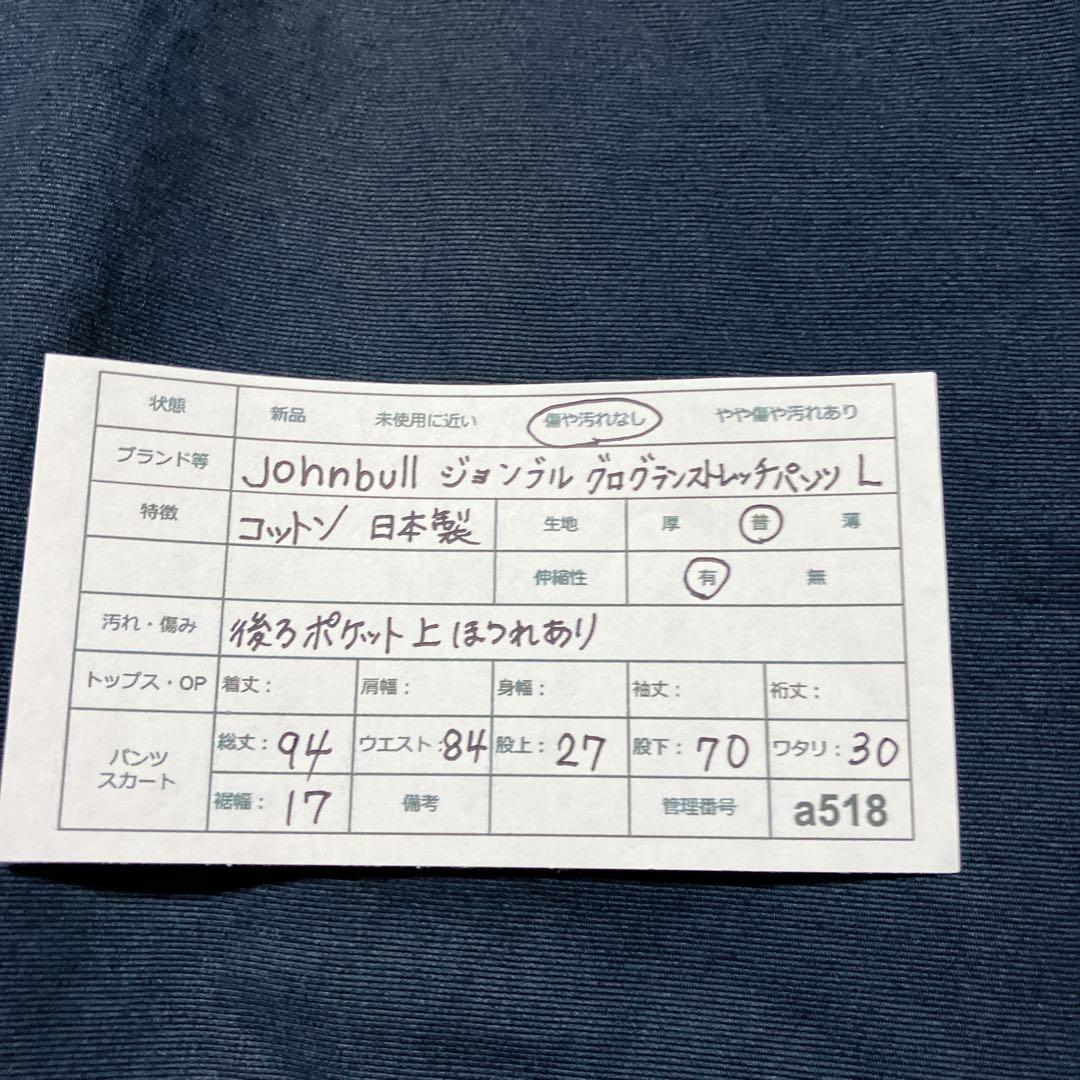 状態 新品 未使用に近い 傷や汚れなし やや傷や汚れあり
ブランド等 Johnbull ジョンブル グログランストレッチパンツ L
特徴 コットン 日本製 生地 厚 普 薄
伸縮性 有 無
汚れ・傷み 後ろポケット上ほつれあり
トップス・OP 着丈: 肩幅: 身幅: 袖丈: 裄丈:
パンツ スカート 総丈:94 ウエスト:84 股上:27 股下:70 ワタリ:30
裾幅:17 備考 管理番号 a518